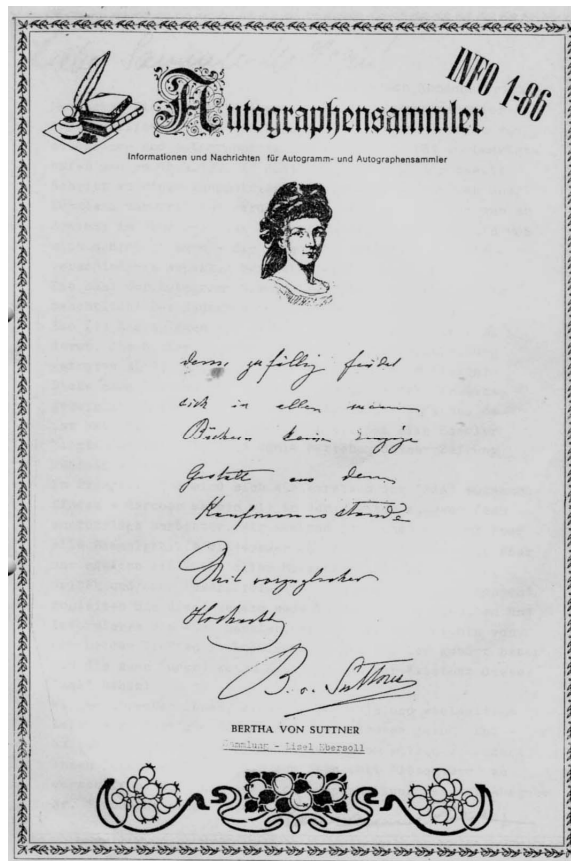 INFO 1-86
Autographensammler
Informationen und Nachrichten für Autogramm- und Autographensammler
denn zufällig findet
sich in allen meinen
Büchern keine einzige
Gestalt aus dem
Kaufmannsstande
Mit vorzüglicher
Hochachtg
B. v. Suttner
BERTHA VON SUTTNER
Sammlung - Lisel Ebersoll